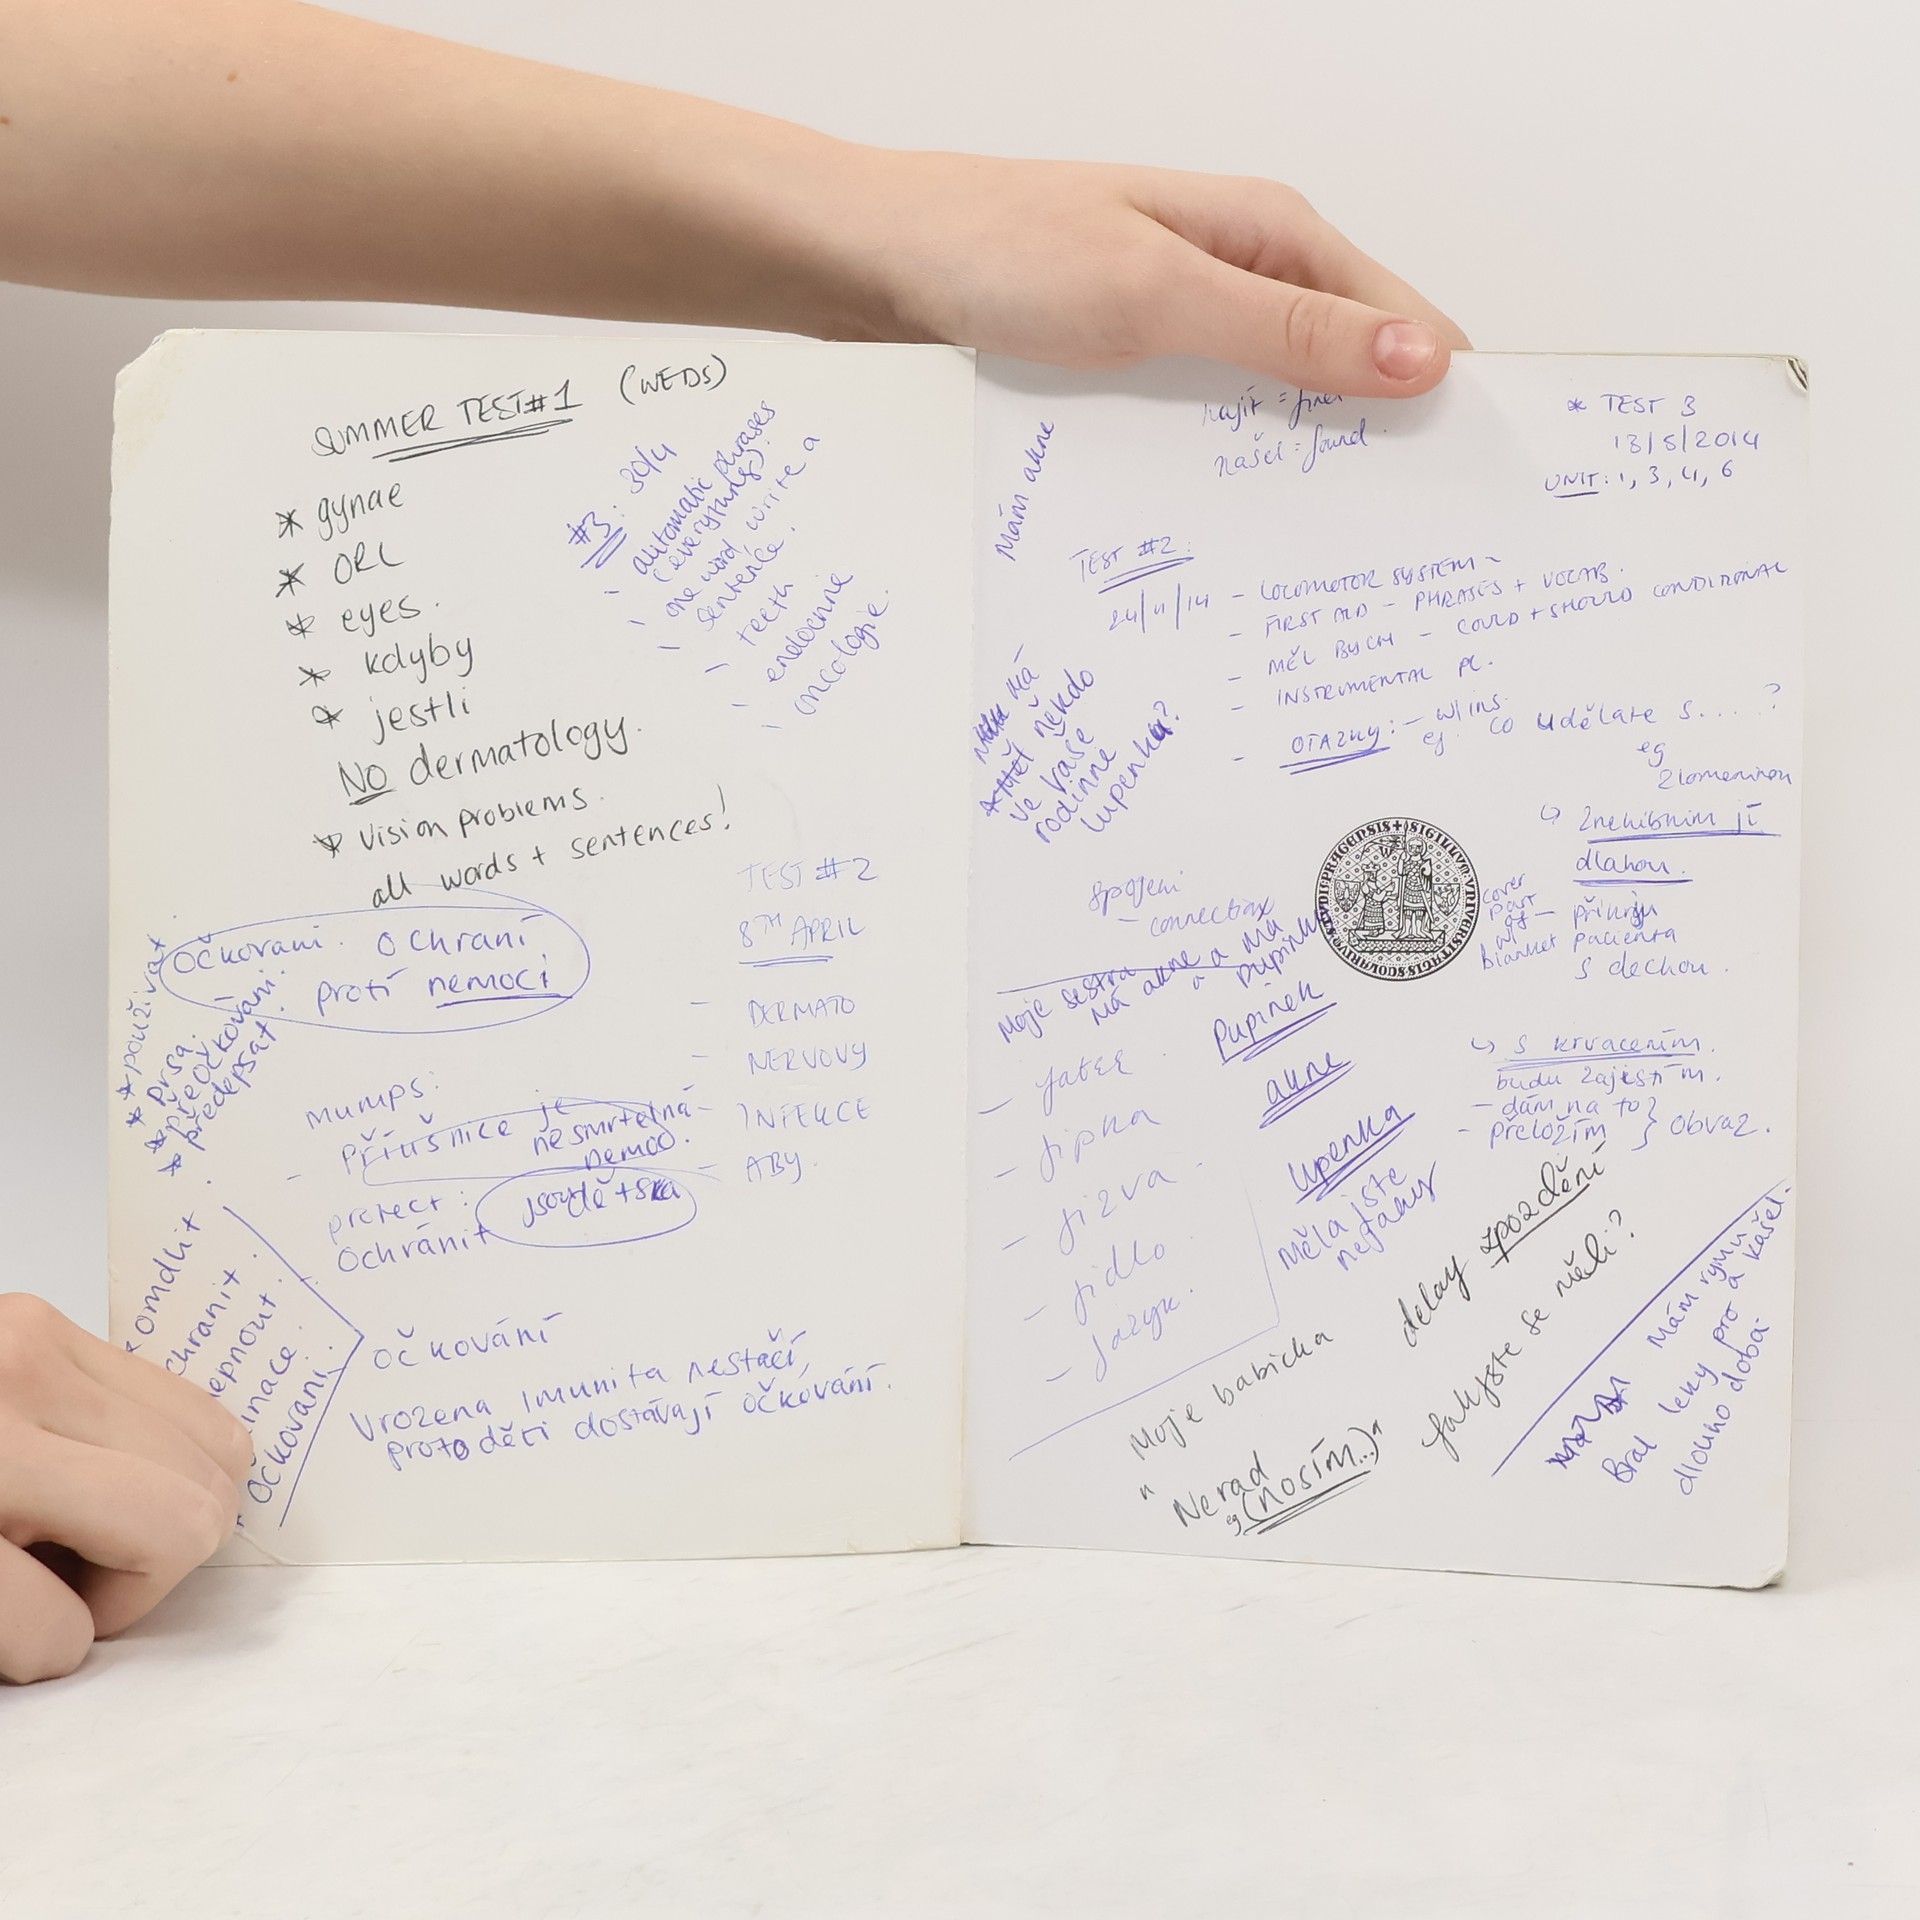 SUMMER TEST #1 (WEDS)
* gynae
* ORL
* eyes.
* kdyby
* jestli
NO dermatology.
* vision problems.
all words + sentences!
#3: 30/4
- automatic phrases
(everything).
- one word write a
sentence.
- teeth
- endocrine
- oncologie.
TEST #2
8TH APRIL
- DERMATO
- NERVOVY
- INFEKCE
- ABY.
Očkovani. ochraní
proti nemoci
* používat
* prsa.
* přeočkování.
* předepsat.
mumps:
- příušnice je
nesmrtelná
nemoc.
protect:
ochránit
omdlit
chranit.
epnout.
inace.
očkovani.
očkování
vrozena imunita nestačí,
proto děti dostávají očkování.
najít = find
našel = found.
* TEST 3
13/5/2014
UNIT: 1, 3, 4, 6
Mám akne
TEST #2:
24/11/14 - LOCOMOTOR SYSTEM
- FIRST AID - PHRASES + VOCAB.
- MĚL BYCH - COULD + SHOULD CONDITIONAL
- INSTRUMENTAL PL.
- OTAZKY: - w/ ins.
eg. co udělate s....?
eg
zlomeninou
má
někdo
ve vaše
rodinne
lupenka?
znehibnim jí
dlahou.
cover
pat
w/
blanket
pacienta
s dechou.
spojeni
- connection
Moje sestra
má akne a má
pupinek
akne
lupenka
Měla jste
- jater
- jipka
- jizva
- jidlo
- jazyk.
s krvacením.
budu zajistím.
- dám na to
- přeložím } obvaz.
delay zpozdění
Jak jste se měli?
Moje babicka
"Nerad
eg (nosím...)"
Mám rýmu
a kašel.
Bral leky pro
dlouho doba.